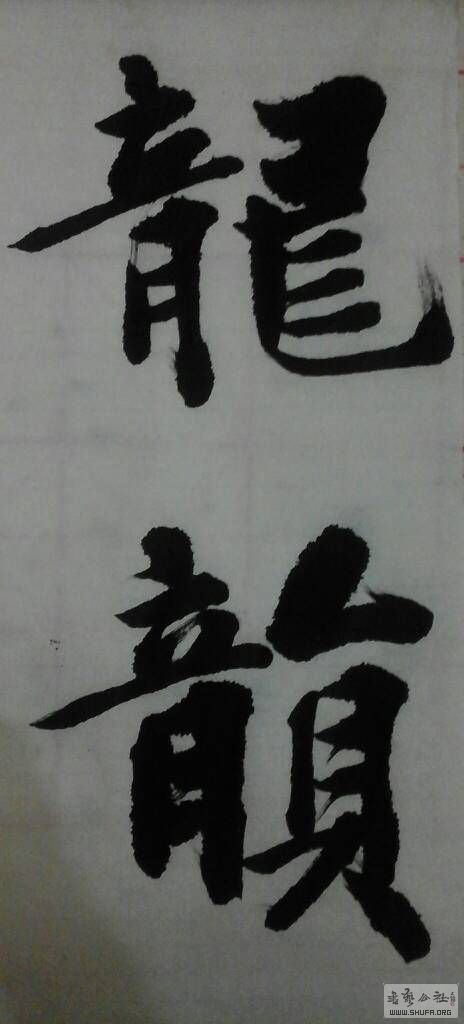 龍
韻
书艺公社
WWW.SHUFA.ORG